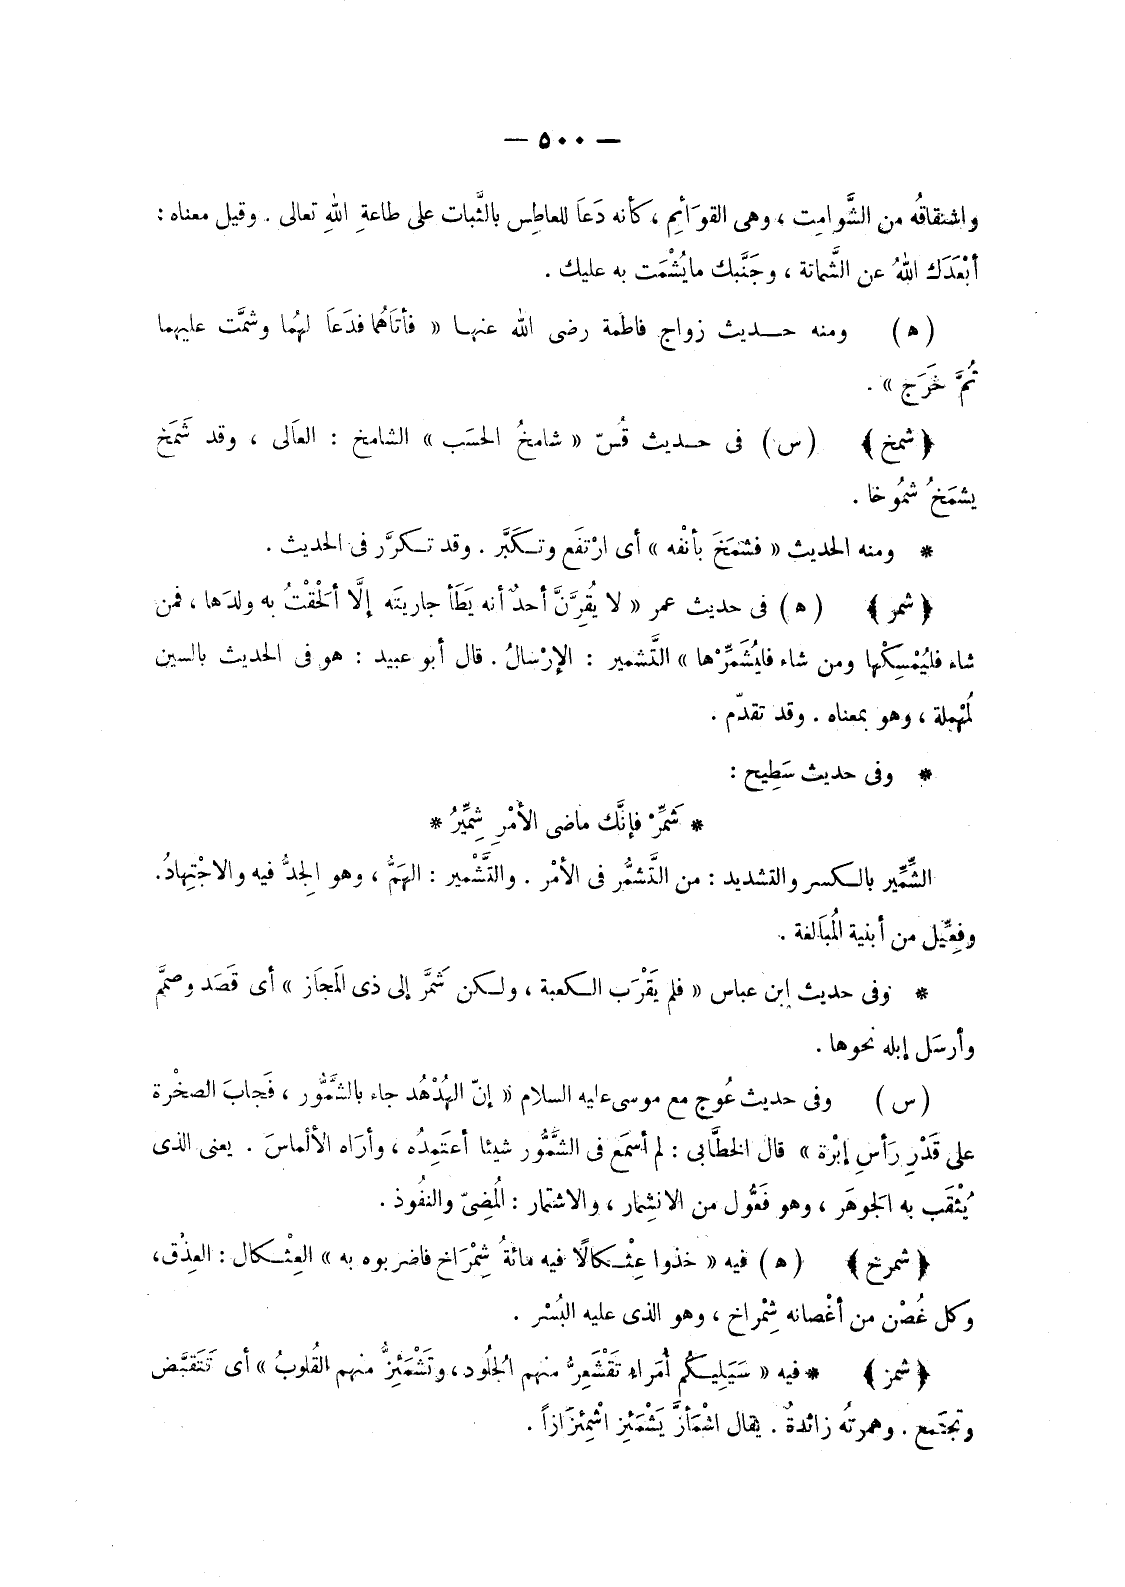 — ٥٠٠ —
واشتقاقُه من الشَّوامِت ، وهى القوَائِم ، كأنه دَعَا للعاطِس بالثَّبات على طاعةِ اللهِ تعالى . وقيل معناه :
أبْعَدَك اللهُ عن الشَّماتة ، وجَنَّبك مايُشْمَت به عليك .
( ه ) ومنه حديث زواج فاطمة رضى الله عنها « فأتاَهُما فدَعَا لهُما وشمَّت عليهما
ثُمَّ خَرَج » .
﴿ شمخ ﴾ ( س ) فى حديث قُسّ « شامخُ الحسَب » الشامخ : العَالى ، وقد شَمَخ
يشمَخُ شمُوخا .
* ومنه الحديث « فشمَخَ بأنْفه » أى ارْتفَع وتكَبَّر . وقد تكرَّر فى الحديث .
﴿ شمر ﴾ ( ه ) فى حديث عمر « لا يُقِرَّنَّ أحدٌ أنه يَطَأ جاريتَه إلَّا ألحَقْتُ به ولدَها ، فمن
شاء فليُمْسِكْها ومن شاء فليُشَمِّرْها » التَّشمير : الإرْسالُ . قال أبو عبيد : هو فى الحديث بالسين
لمُهملة ، وهو بمعناه . وقد تقدّم .
* وفى حديث سَطِيح :
* شَمِّرْ فإنَّك ماضى الأمْرِ شِمِّيرُ *
الشِّمِّير بالكسر والتشديد : من التَّشمُّر فى الأمْر . والتَّشْمير : الهَمُّ ، وهو الجِدُّ فيه والاجْتِهادُ.
وفِعِّيل من أبنية المُبَالغة .
* وفى حديث ابن عباس « فلم يَقْرَب الكعبة ، ولكن شَمَّر إلى ذى المَجَاز » أى قَصَد وصمَّم
وأرسَل إبله نحوها .
( س ) وفى حديث عُوج مع موسى عليه السلام « إنّ الهُدْهُد جاء بالشَّمُّور ، فَجابَ الصخْرة
على قَدْرِ رَأسِ إبْرة » قال الخطَّابى : لم أسمَع فى الشَّمُّور شيئا أعتَمِدُه ، وأرَاه الألْماسَ . يعنى الذى
يُثْقَب به الجَوهَر ، وهو فَعُّول من الانشِمار ، والاشتمار : المُضِىّ والنفُوذ .
﴿ شمرخ ﴾ ( ه ) فيه « خذوا عِثْكالًا فيه مائةُ شِمْرَاخ فاضربوه به » العِثْكال : العِذْق،
وكل غُصْن من أغْصانه شِمْراخ ، وهو الذى عليه البُسْر .
﴿ شمز ﴾ * فيه « سَيَلِيكُم أُمَراء تَقْشَعِرُّ منهم الجُلُود ، وتَشْمَئِزُّ منهم القُلوبُ » أى تَتَقبَّض
وتجتَمع . وهمزتُه زائدةٌ . يقال اشْمَأزَّ يَشْمَئِز اشْمِئزَازاً .